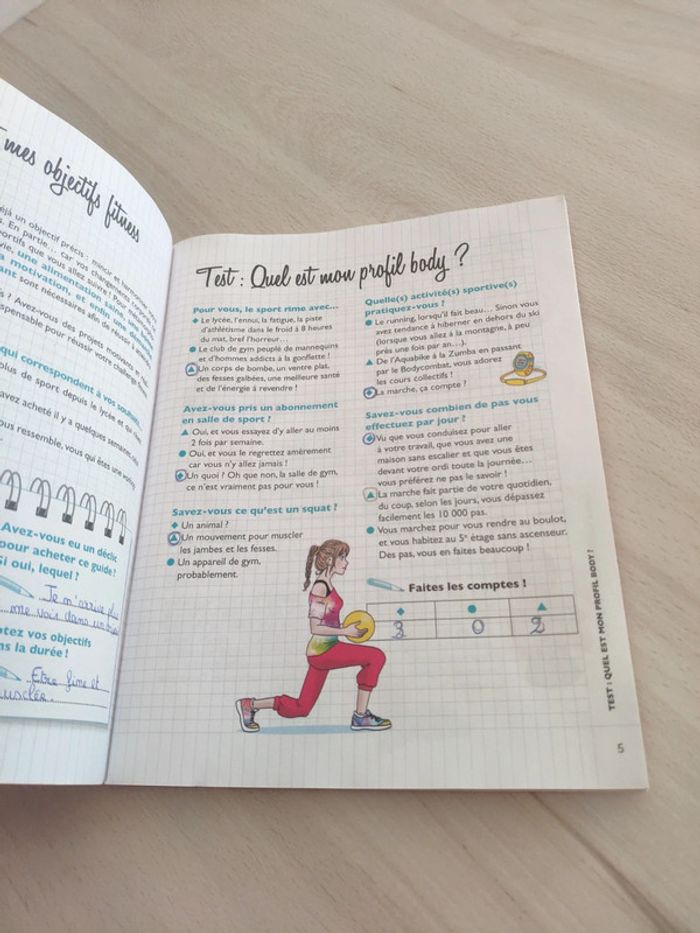 mes objectifs fitness
éjà un objectif précis : mincir et
En partie... car vos changements
sportifs que vous allez suivre ! Pour
vie, une alimentation saine, une bonne
la motivation, et enfin une
sont nécessaires afin de réussir
? Avez-vous des projets motivants
pour réussir votre challenge
qui correspondent à vos
plus de sport depuis le lycée et
avez acheté il y a quelques semaines
ous ressemble, vous qui êtes une
Avez-vous eu un déclic
pour acheter ce guide ?
Si oui, lequel ?
Je m'arrive plus
me vois dans un
tez vos objectifs
ns la durée !
Être fine et
musclée.
Test : Quel est mon profil body ?
Pour vous, le sport rime avec...
◆ Le lycée, l'ennui, la fatigue, la piste
d'athlétisme dans le froid à 8 heures
du mat, bref l'horreur...
● Le club de gym peuplé de mannequins
et d'hommes addicts à la gonflette !
▲ Un corps de bombe, un ventre plat,
des fesses galbées, une meilleure santé
et de l'énergie à revendre !
Avez-vous pris un abonnement
en salle de sport ?
▲ Oui, et vous essayez d'y aller au moins
2 fois par semaine.
● Oui, et vous le regrettez amèrement
car vous n'y allez jamais !
◆ Un quoi ? Oh que non, la salle de gym,
ce n'est vraiment pas pour vous !
Savez-vous ce qu'est un squat ?
◆ Un animal ?
▲ Un mouvement pour muscler
les jambes et les fesses.
● Un appareil de gym,
probablement.
Quelle(s) activité(s) sportive(s)
pratiquez-vous ?
● Le running, lorsqu'il fait beau... Sinon vous
avez tendance à hiberner en dehors du ski
(lorsque vous allez à la montagne, à peu
près une fois par an...).
▲ De l'Aquabike à la Zumba en passant
par le Bodycombat, vous adorez
les cours collectifs !
◆ La marche, ça compte ?
Savez-vous combien de pas vous
effectuez par jour ?
◆ Vu que vous conduisez pour aller
à votre travail, que vous avez une
maison sans escalier et que vous êtes
devant votre ordi toute la journée...
vous préférez ne pas le savoir !
▲ La marche fait partie de votre quotidien,
du coup, selon les jours, vous dépassez
facilement les 10 000 pas.
● Vous marchez pour vous rendre au boulot,
et vous habitez au 5e étage sans ascenseur.
Des pas, vous en faites beaucoup !
Faites les comptes !
◆ ● ▲
3 0 2
TEST : QUEL EST MON PROFIL BODY ?
5